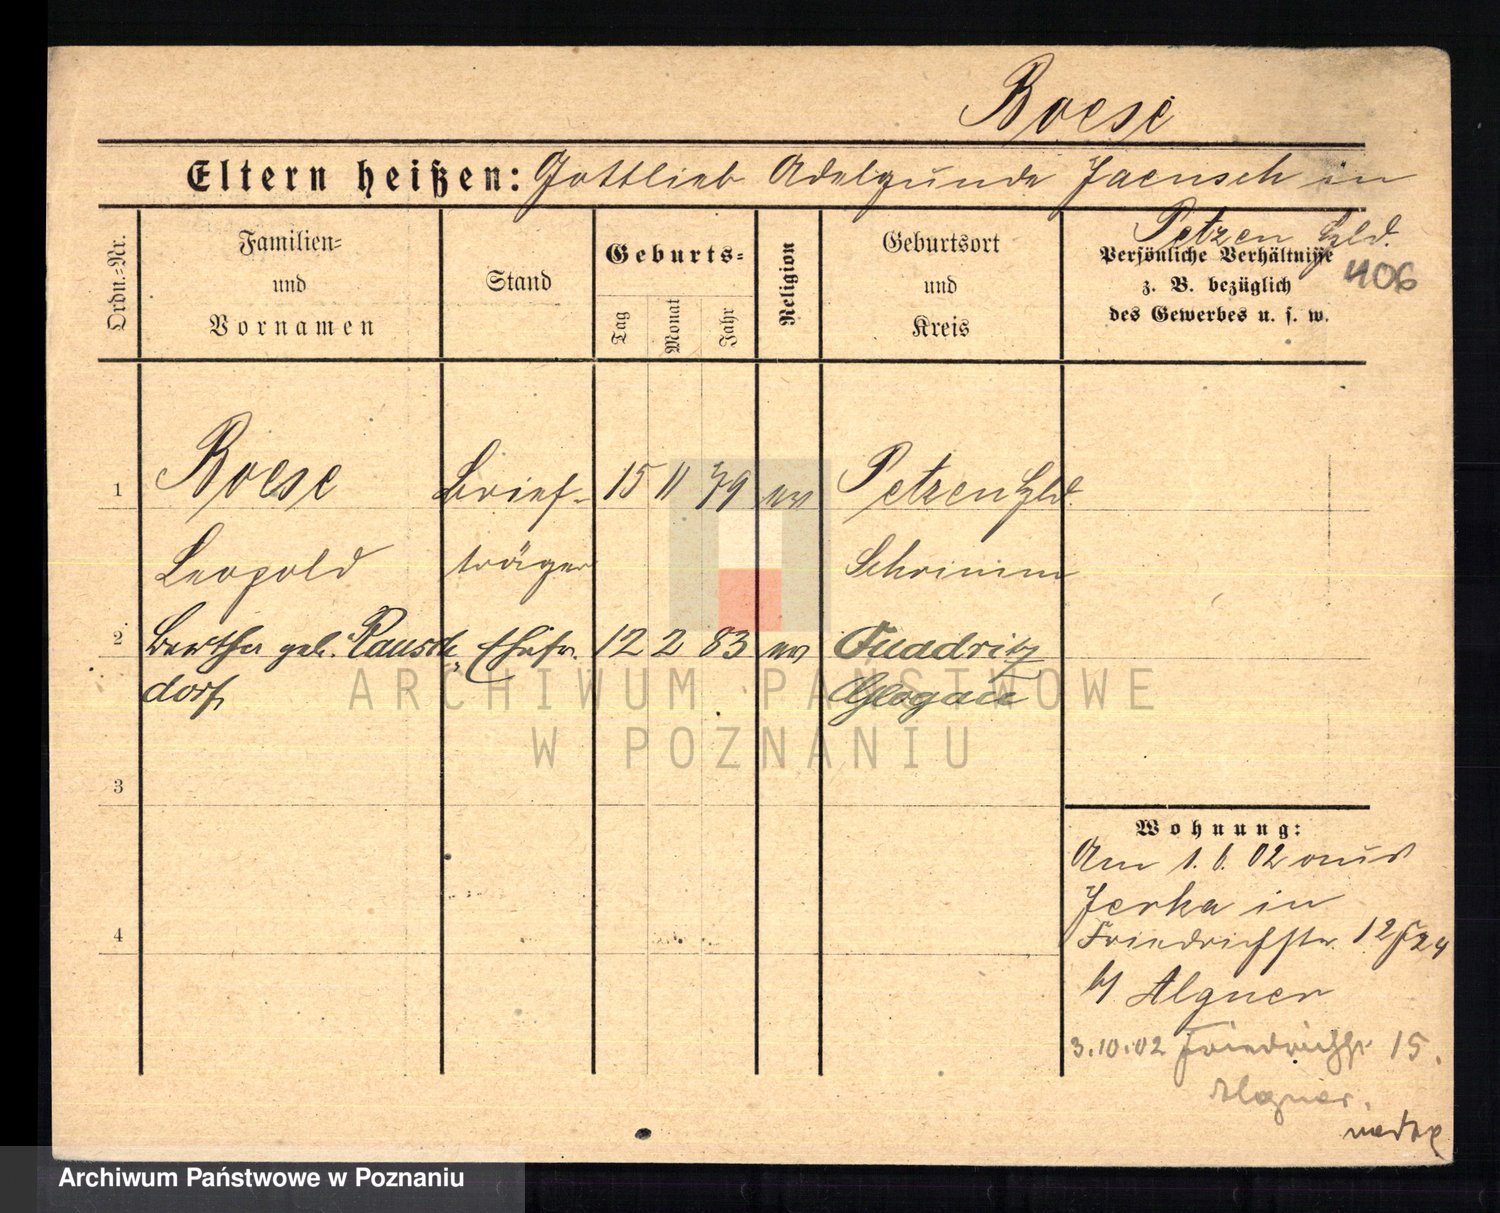 Boese
Eltern heißen: Gottlieb Adelgunde Jaensch in
Petzen Hld.
406
Ordn.=Nr.
Familien=
und
Vornamen
Stand
Geburts=
Tag
Monat
Jahr
Religion
Geburtsort
und
Kreis
Persönliche Verhältnisse
z. B. bezüglich
des Gewerbes u. s. w.
1 Boese Brief- 15 11 79 ev Petzen Hld.
Leopold träger Schrimm
2 Bertha geb. Rausch Ehefr. 12 2 83 ev Quadritz
dorf Glogau
3
4
Wohnung:
Am 1. 6. 02 aus
Jerka in
Friedrichstr. 12
b/ Algner
3.10.02 Friedrichstr 15.
Algner.
ARCHIWUM PAŃSTWOWE
W POZNANIU
Archiwum Państwowe w Poznaniu